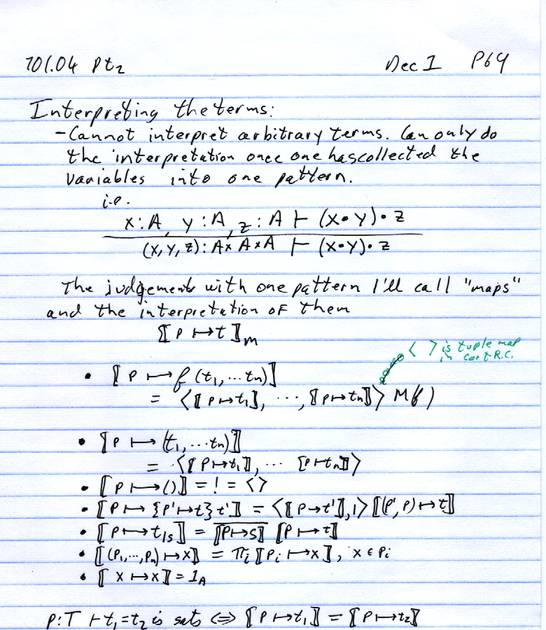 701.04 Pt2 Dec 1 P64
Interpreting the terms:
- Cannot interpret arbitrary terms. Can only do
the interpretation once one has collected the
variables into one pattern.
i.e.
x:A, y:A, z:A ⊢ (x•y)•z
(x,y,z):A×A×A ⊢ (x•y)•z
The judgements with one pattern I'll call "maps"
and the interpretation of them
⟦p ↦ t⟧m
⟨ ⟩ is tuple map
in Cart R.C.
• ⟦p ↦ f(t1,...tn)⟧
= ⟨⟦p↦t1⟧, ..., ⟦p↦tn⟧⟩ M(f)
• ⟦p ↦ (t1,...tn)⟧
= ⟨⟦p↦t1⟧, ... ⟦p↦tn⟧⟩
• ⟦p ↦ ()⟧ = ! = ⟨⟩
• ⟦p ↦ {p'↦t}t'⟧ = ⟨⟦p↦t'⟧,1⟩⟦(p',p)↦t⟧
• ⟦p↦t|s⟧ = \overline{⟦p↦s⟧} ⟦p↦t⟧
• ⟦(p1,...,pn)↦x⟧ = πi⟦pi↦x⟧, x∈pi
• ⟦x↦x⟧ = 1A
p:T ⊢ t1=t2 is sats ⇔ ⟦p↦t1⟧ = ⟦p↦t2⟧